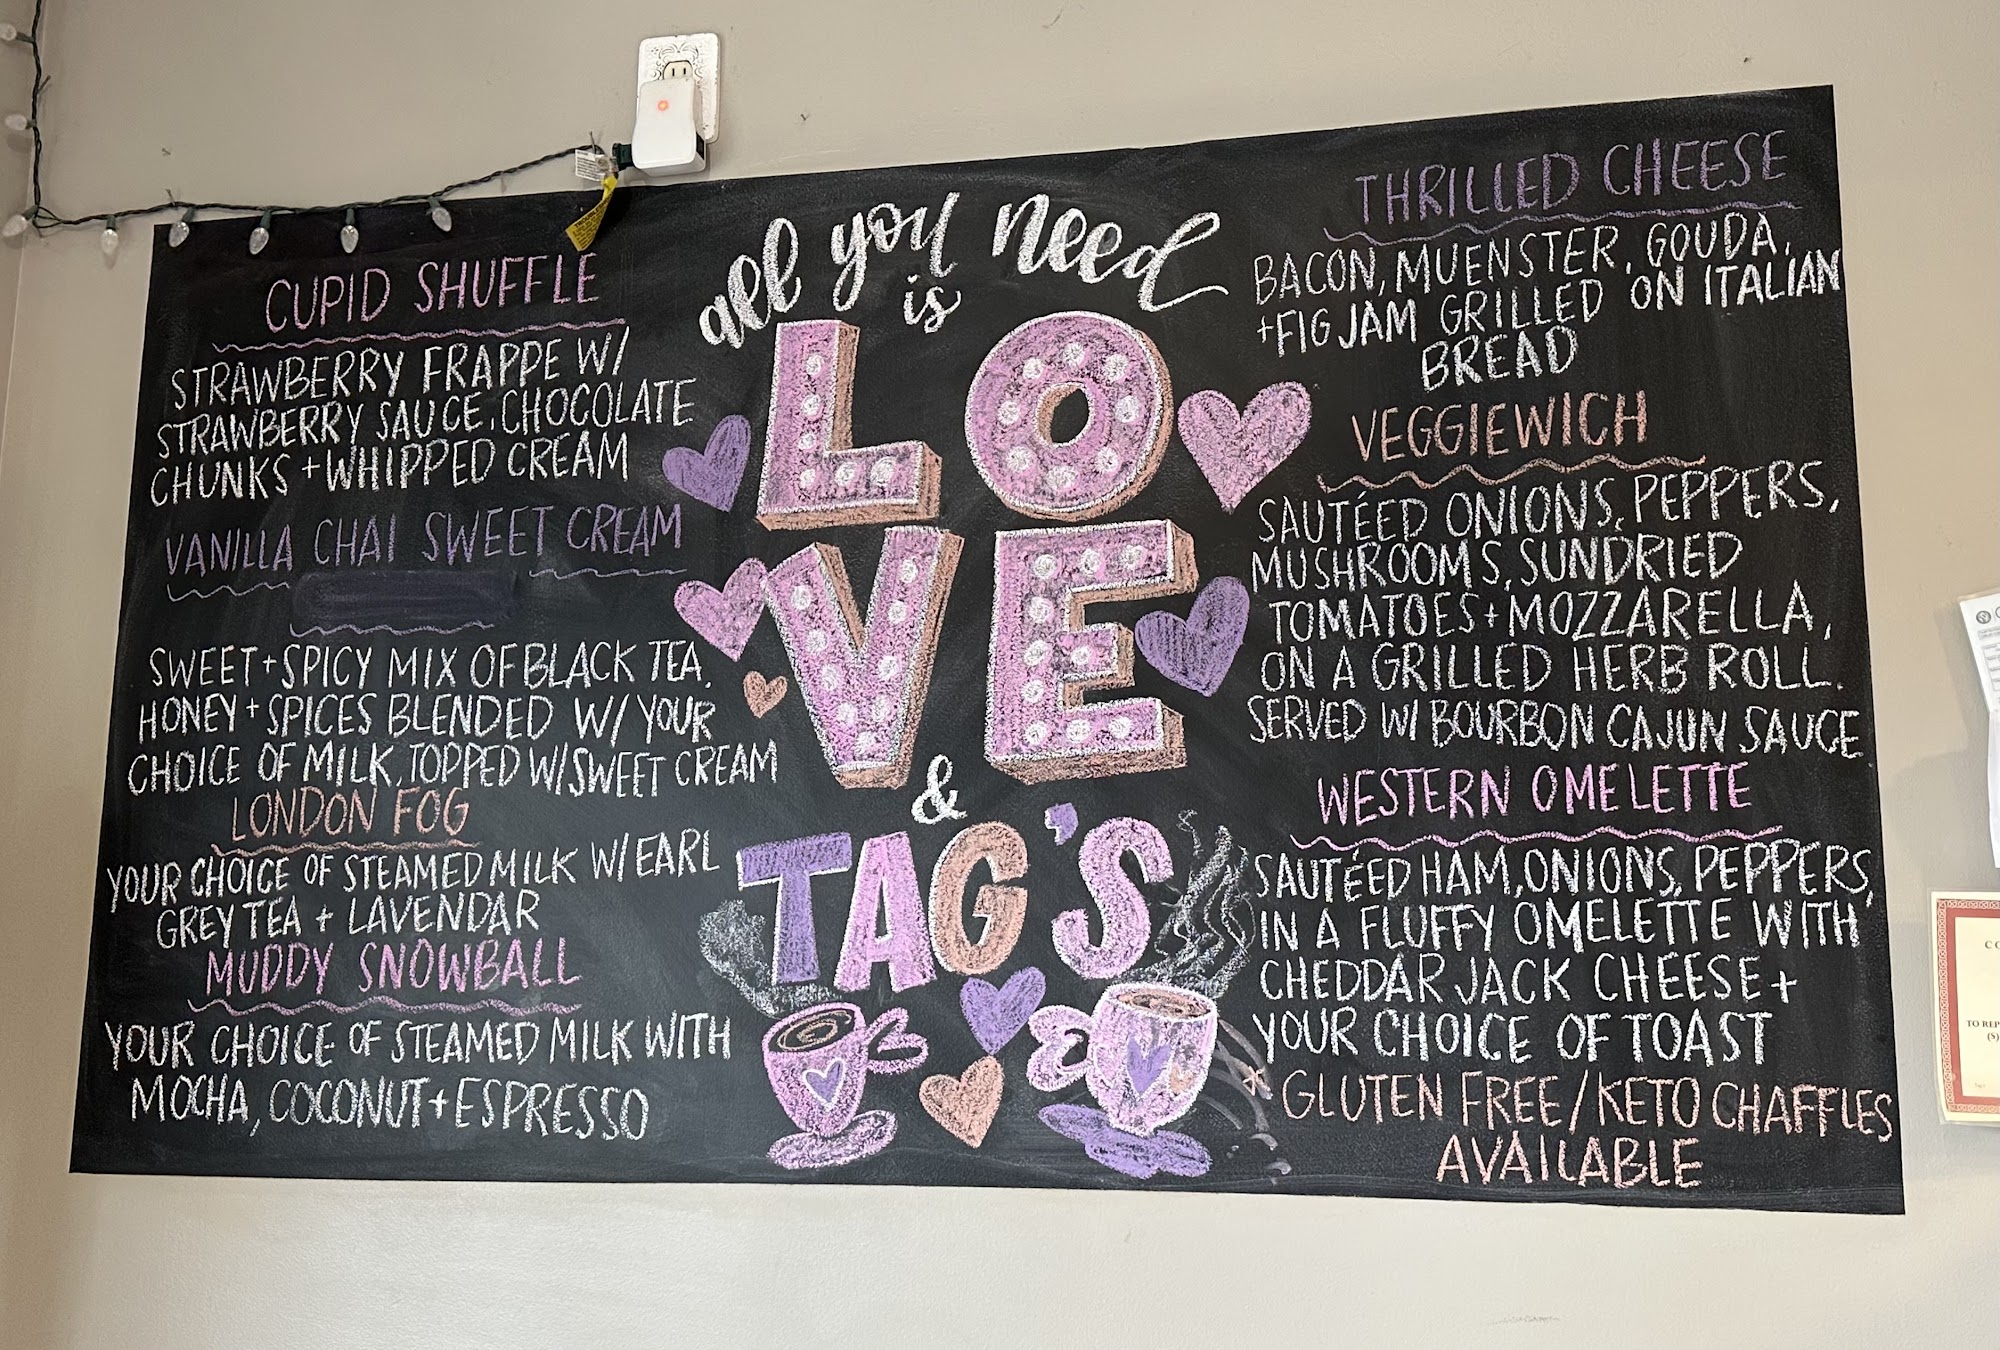 CUPID SHUFFLE
STRAWBERRY FRAPPE W/
STRAWBERRY SAUCE, CHOCOLATE
CHUNKS + WHIPPED CREAM
VANILLA CHAI SWEET CREAM
SWEET + SPICY MIX OF BLACK TEA,
HONEY + SPICES BLENDED W/ YOUR
CHOICE OF MILK, TOPPED W/ SWEET CREAM
LONDON FOG
YOUR CHOICE OF STEAMED MILK W/ EARL
GREY TEA + LAVENDAR
MUDDY SNOWBALL
YOUR CHOICE OF STEAMED MILK WITH
MOCHA, COCONUT + ESPRESSO
all you need
is
LO
VE
&
TAG'S
THRILLED CHEESE
BACON, MUENSTER, GOUDA,
+ FIG JAM GRILLED ON ITALIAN
BREAD
VEGGIEWICH
SAUTÉED ONIONS, PEPPERS,
MUSHROOMS, SUNDRIED
TOMATOES + MOZZARELLA,
ON A GRILLED HERB ROLL.
SERVED W/ BOURBON CAJUN SAUCE
WESTERN OMELETTE
SAUTÉED HAM, ONIONS, PEPPERS,
IN A FLUFFY OMELETTE WITH
CHEDDAR JACK CHEESE +
YOUR CHOICE OF TOAST
* GLUTEN FREE/KETO CHAFFLES
AVAILABLE
TO REP
(S)